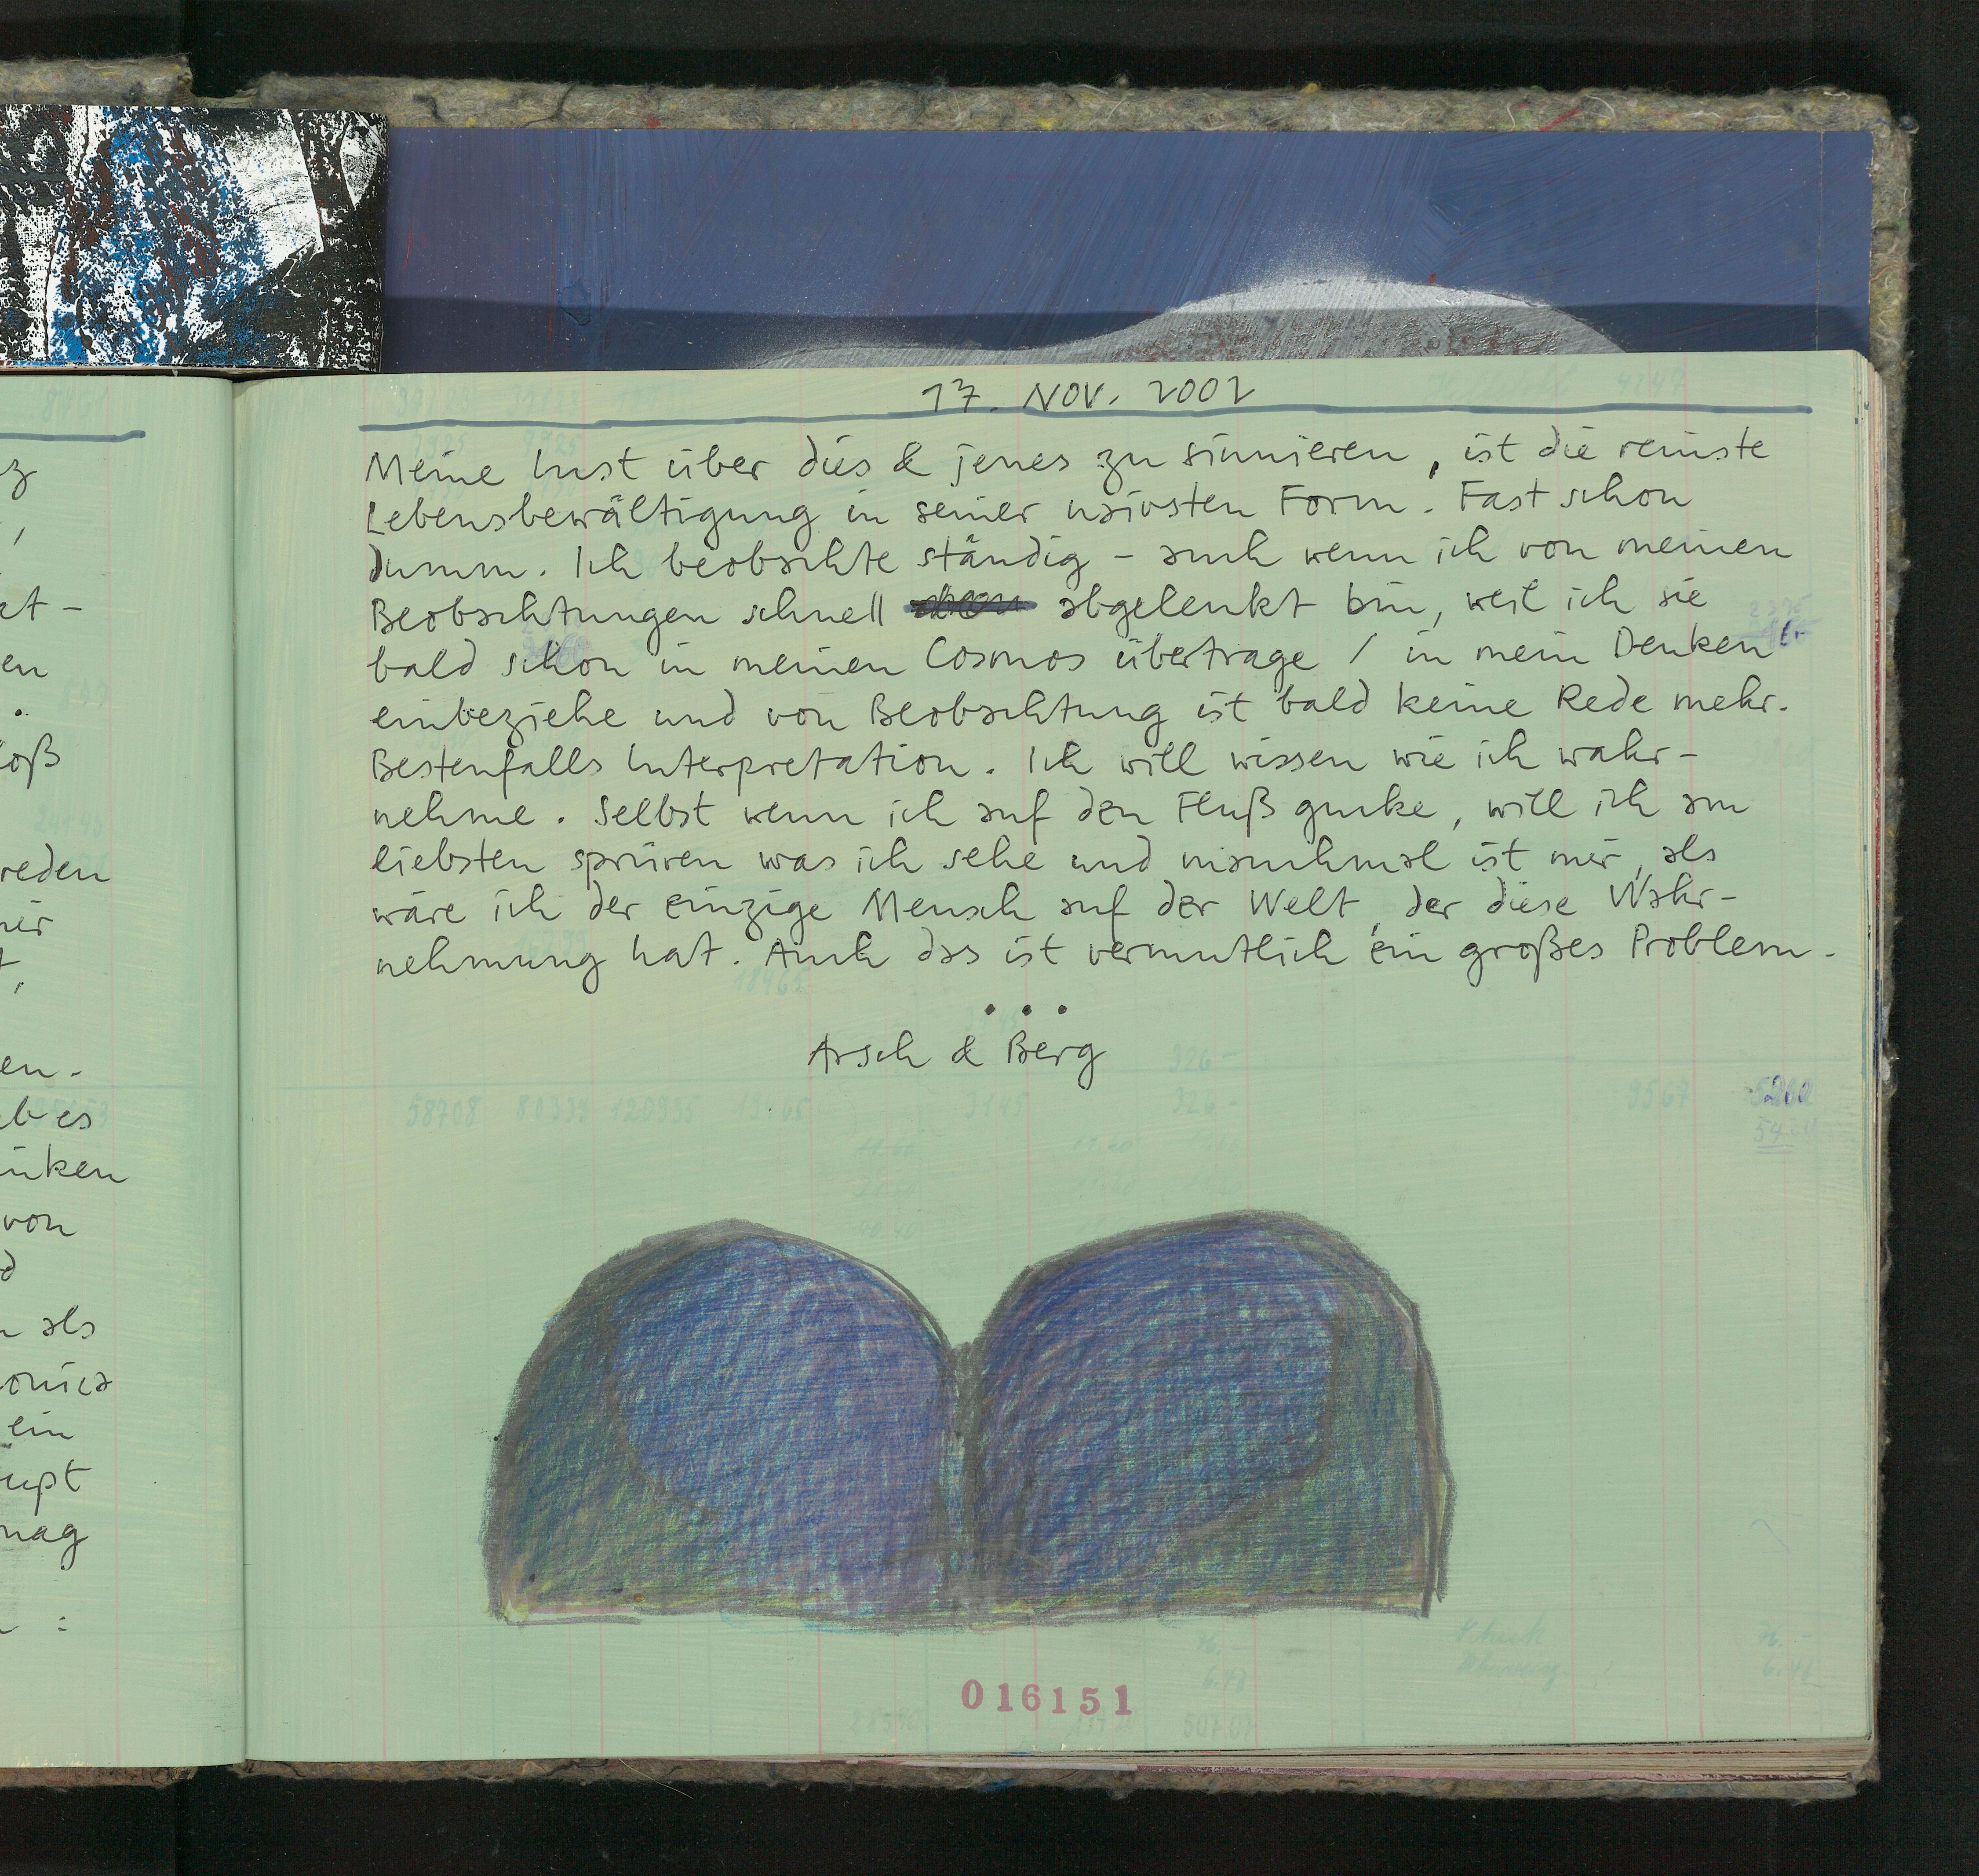 17. NOV. 2002
Meine Lust über dies & jenes zu sinnieren, ist die reinste
Lebensbewältigung in seiner naivsten Form. Fast schon
dumm. Ich beobachte ständig – auch wenn ich von meinen
Beobachtungen schnell abgelenkt bin, weil ich sie
bald schon in meinen Cosmos übertrage / in mein Denken
einbeziehe und von Beobachtung ist bald keine Rede mehr.
Bestenfalls Interpretation. Ich will wissen wie ich wahr-
nehme. Selbst wenn ich auf den Fluß gucke, will ich am
liebsten spüren was ich sehe und manchmal ist mir, als
wäre ich der einzige Mensch auf der Welt, der diese Wahr-
nehmung hat. Auch das ist vermutlich ein großes Problem.
...
Arsch & Berg
58708 80339 120935 3145 326- 9567
016151
reden
von
als
ein
mag